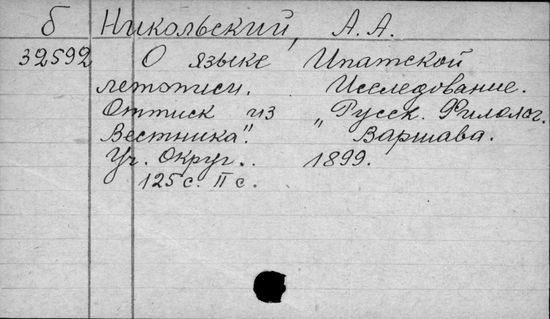 б Никольский, А.А.
32592 О языке Ипатской
летописи. Исследование.
Оттиск из „Русск. Филолог.
Вестника". Варшава.
Уч. Округ.. 1899.
125 с. II с.